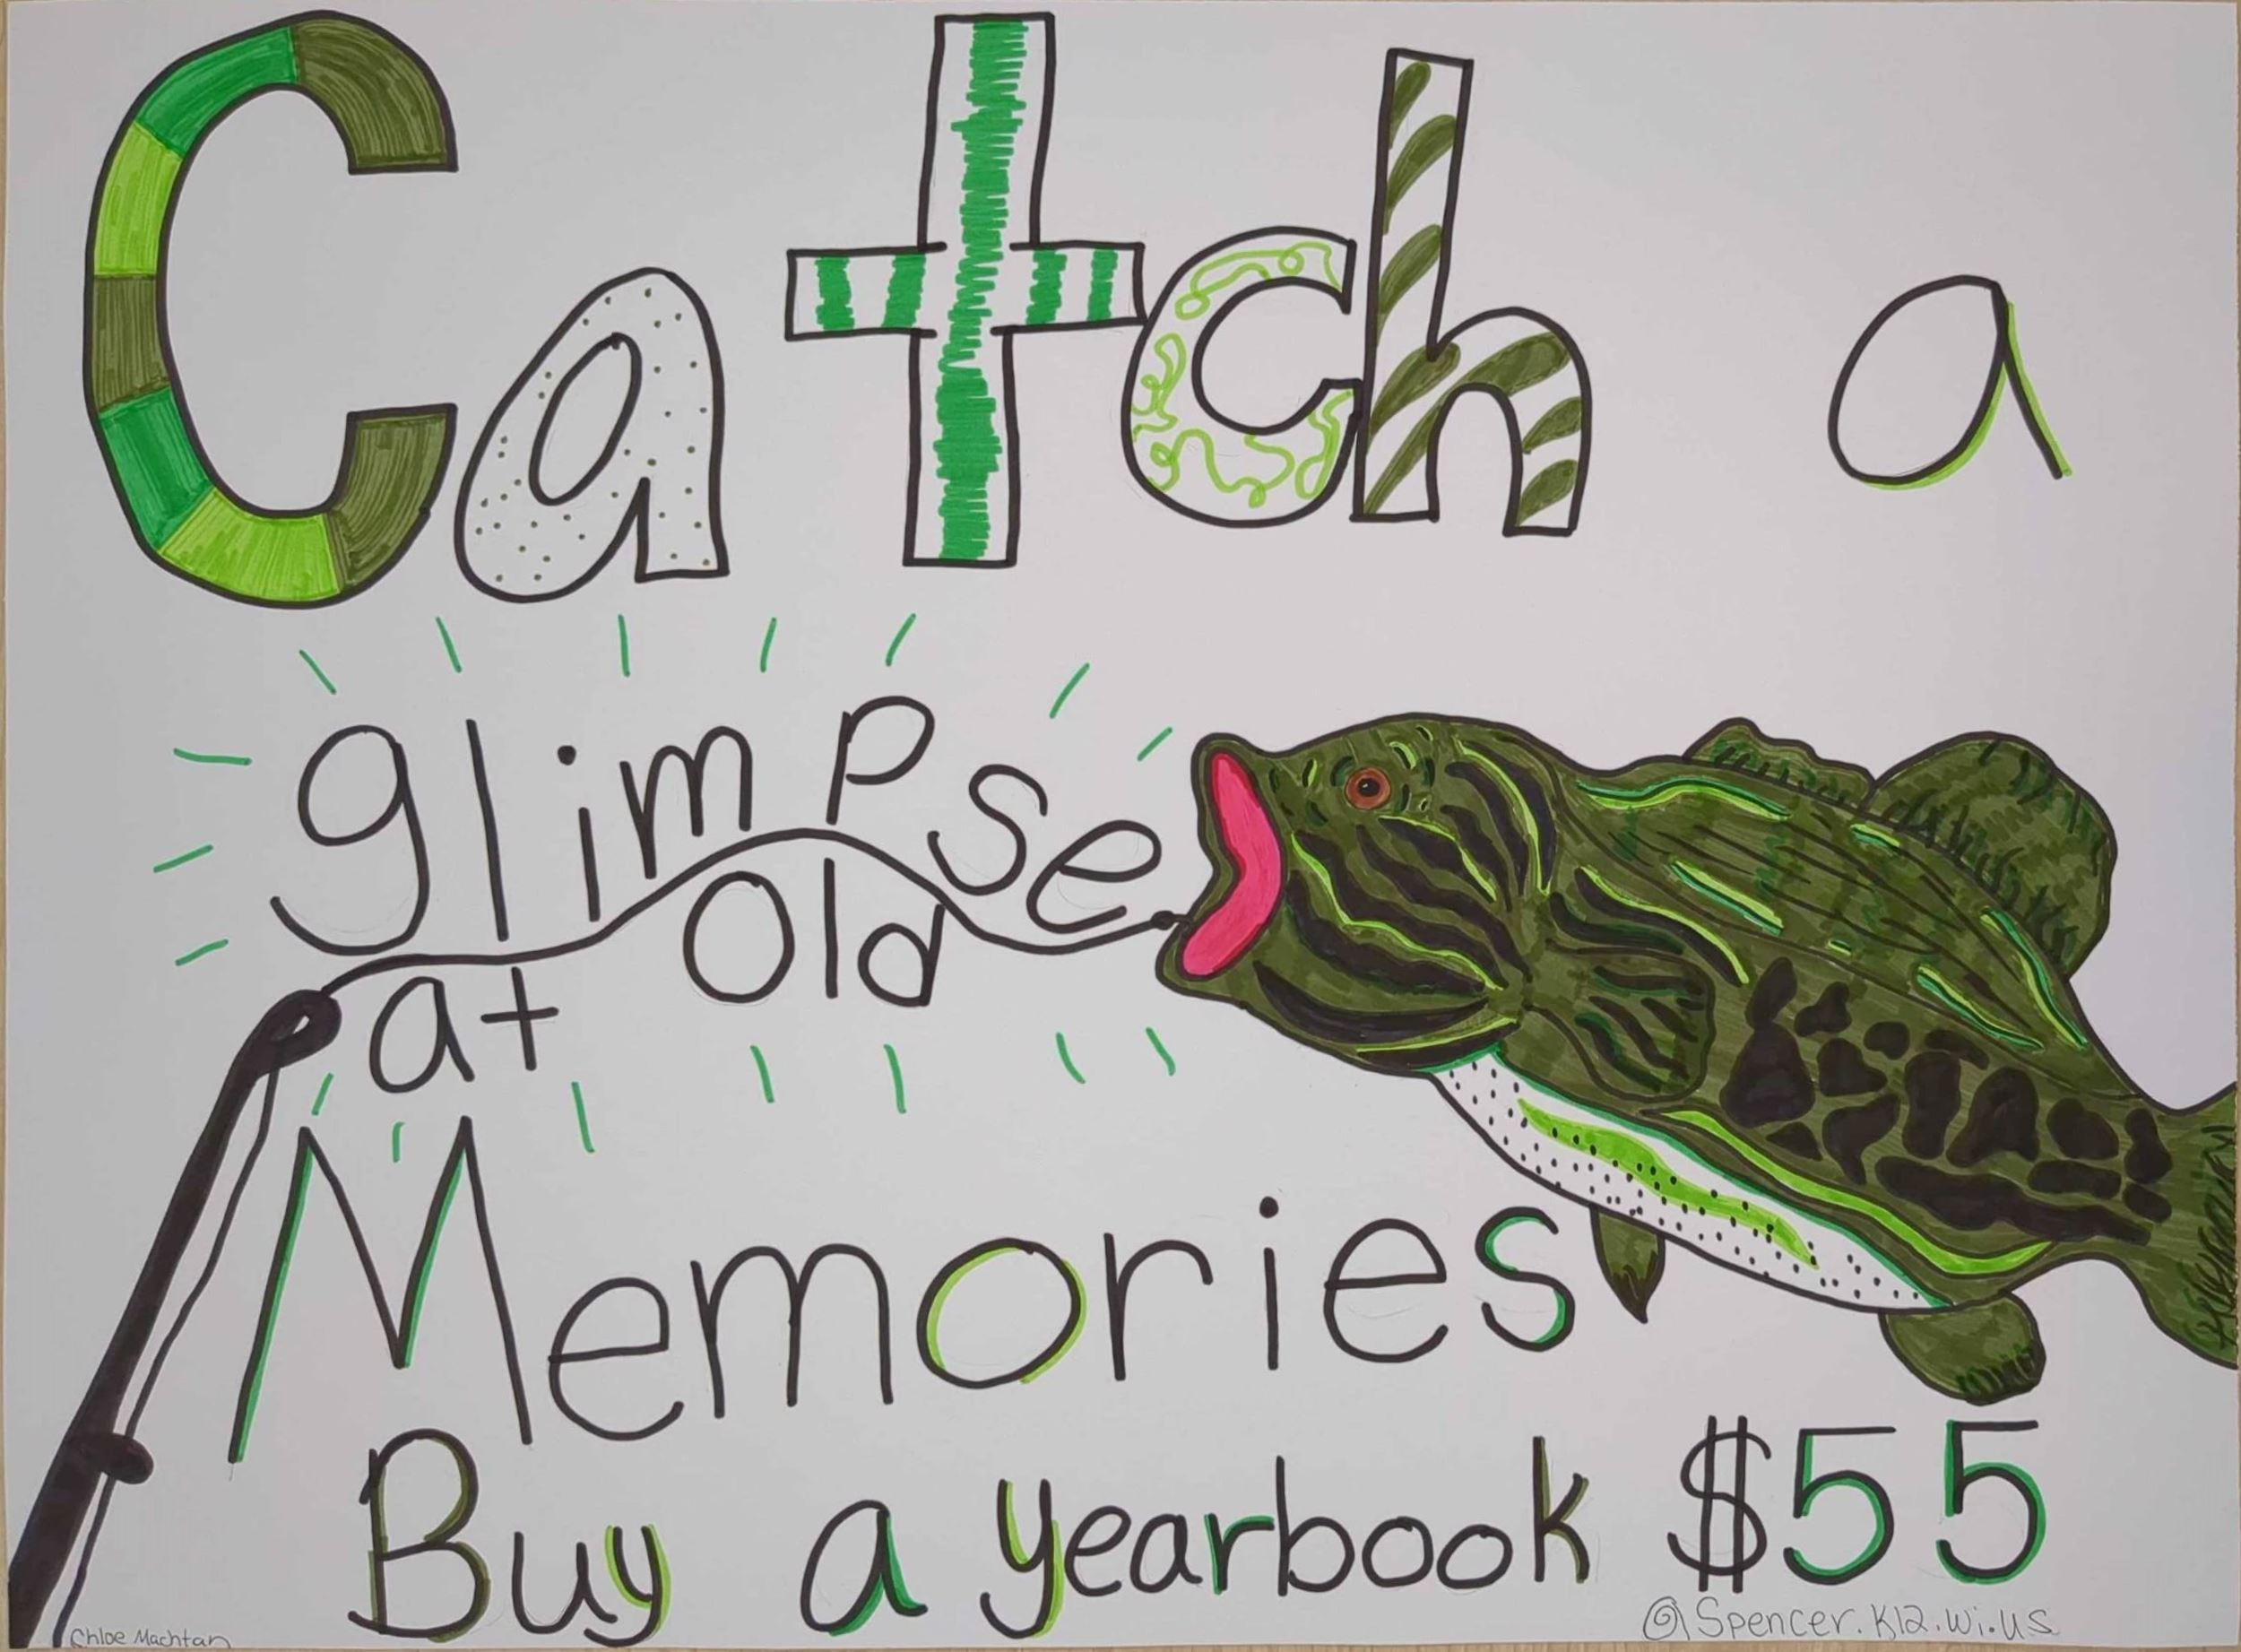 Catch a
glimpse
at old
Memories
Buy a yearbook $55
Chloe Machtan
@Spencer.K12.Wi.US